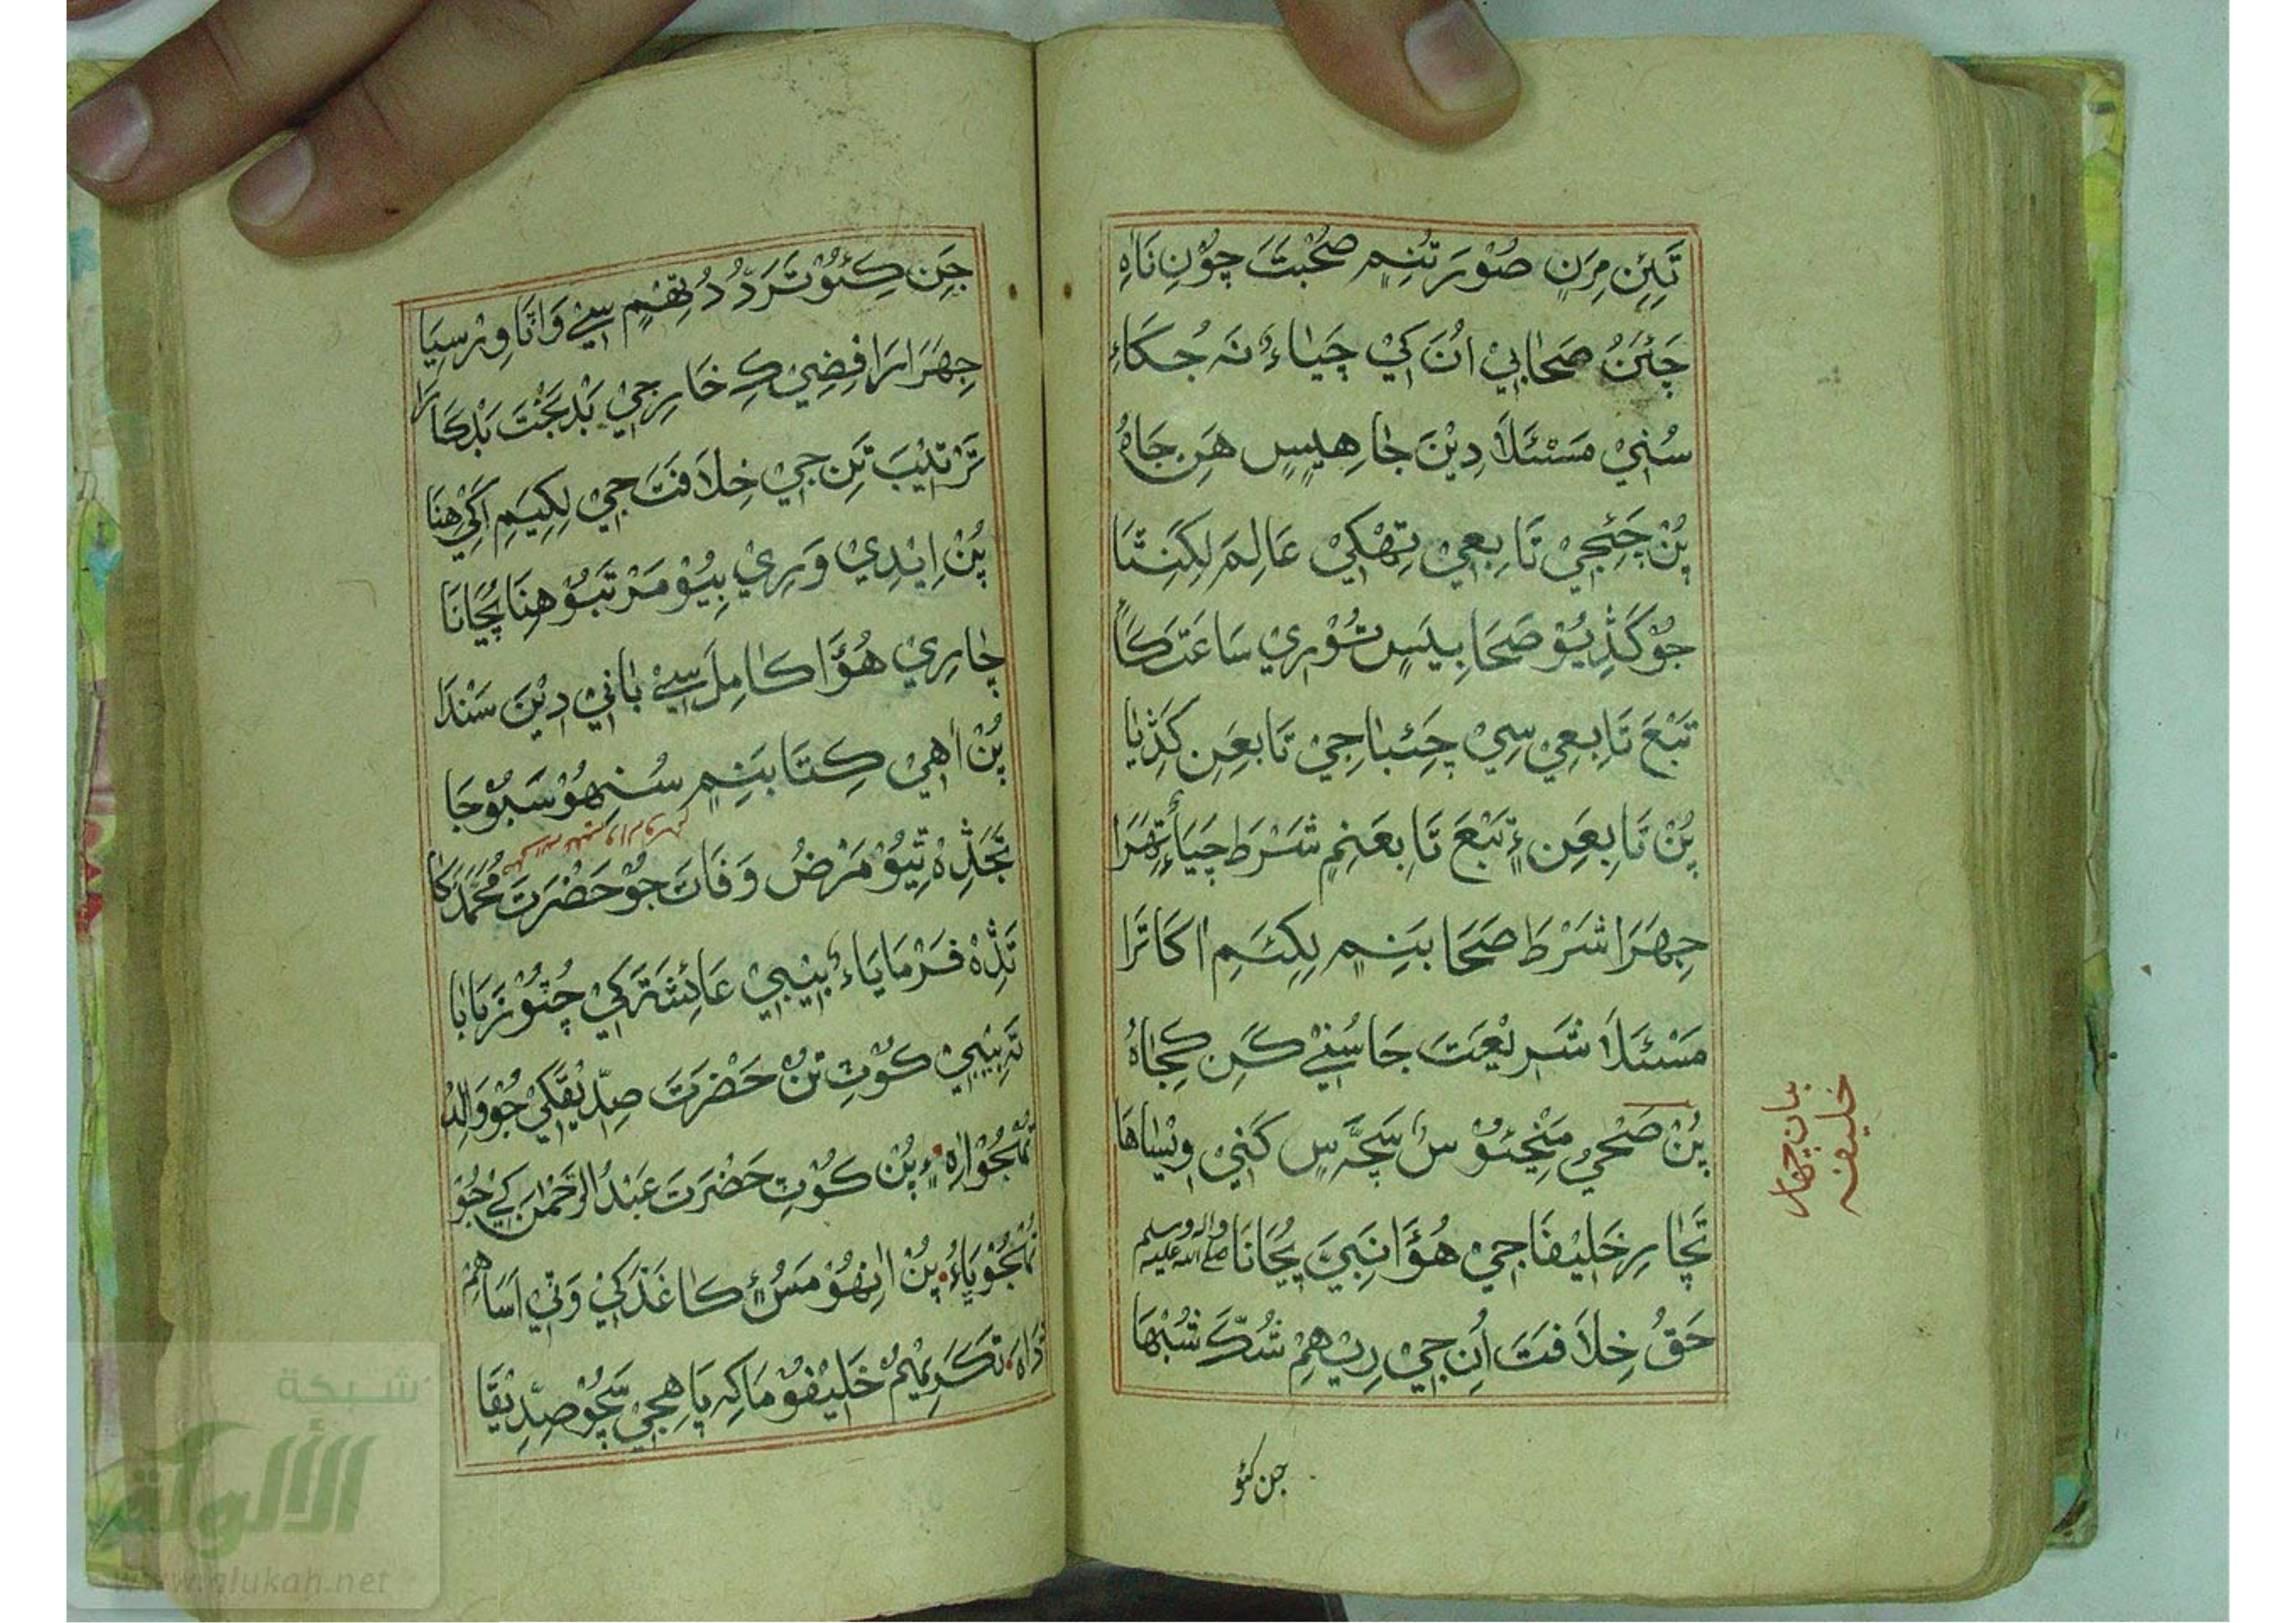 تَيِّنِ مِرَنِ صُوْرَتَنِمٖ صُحْبَتَ چُوْنِ نَاهِ
چَئِنُ صَحَابِيْ اُنَ کِيْ چَيَاءُ نَہ جُڪَاءِ
سُنِيْ مَسْئَلَا دِيْنَ جَا هِيِسٖ هَنِ جَاهُ
پُنْ چَئِجِيْ تَابِعِيْ تِهْکِيْ عَالِمَ لِکَنِتَا
جُوْ کَڎِيُوْ صَحَابِيَسٖ تُوْرِيْ سَاعَتَ کَا
تَبْعَ تَابِعِيْ سِيْ چَئِبَا جِيْ تَابِعَنِ کَڎِيَا
پُنْ تَابِعَنِ ءٖ تَبْعَ تَابِعَنِمٖ شَرْطَ چَيَاءُ تِهَرَا
جِهَرَا شَرْطَ صَحَابَنِمٖ لِکِئَمِ اَکَاتَرَا
مَسْئَلَا شَرِيْعَتَ جَا سُنِيْ ڪَنِ ڪِجَاهُ
پُنْ صَحْيُ مَنْجِئُوْ سُ سَچَہَ سٖ کَنِيْ وِيْسَاهَا
تَچَارِ خَلِيْفَا جِيْ هُؤَا نَبِيَ پُجَانَا صلي الله عليه واله وسلم
حَقُ خِلَافَتَ اُنِ جِيْ رِيْ هِمِ شُڪَّ شُبْهَا
جن کئو
بيان چهار
خليفه
جَنِ ڪِئُوْ تَرَدُّدُ تِهْمٖ سِيْ وَاٽَا وِرْسِيَا
جِهَرَا رَافِضِيْ ڪِ خَارِجِيْ بَدْبَخْتَ بَدْڪَارَا
تَرْتِيْبَ تِنِ جِيْ خِلَافَتَ جِيْ لِکِيَمِ اَکِيْ هِنَا
پُنْ اِيْدِيْ وَرِيْ بِيُوْ مَرْتَبُوْ هِنَا پُجَانَا
چَارِيْ هُؤَا کَامِلَ سِيْ بَانِيْ دِيْنَ سَنْدَا
پُنْ اَهِيْ ڪِتَابَنِمٖ سُنِهُوْ سَبُوْجَا
تَجَڎِہْ تِيُوْ مَرَضُ وَفَاتَ جُوْ حَضْرَتَ مُحَمَّدَ کَا
تَڎِہْ فَرْمَايَاءُ بِيْبِيْ عَائِشَۃَ کِيْ چُئُوْ زَبَابَا
تَہ بِيْبِيْ ڪُوْٺِ تُنْ حَضْرَتَ صِدِّيْقَ کِيْ جُوْ وَالِدُ
تُهْجُوْ اٰرِہْ ءٖ پُنْ ڪُوْٺِ حَضْرَتَ عَبْدُالرَّحْمٰنَ کِيْ جُوْ
تُهْجُوْ يَاءُ پُنْ اٰنِهُوْ مَسُ ءٖ ڪَاغَذَ کِيْ وَٺِيْ اَسَاهِمٖ
تَکَرِيْمُ خَلِيْفُوْ مَاکِہ پَاهِجِيْ سَچُوْ صِدِّيْقَا
شبكة
الألوكة
www.alukah.net